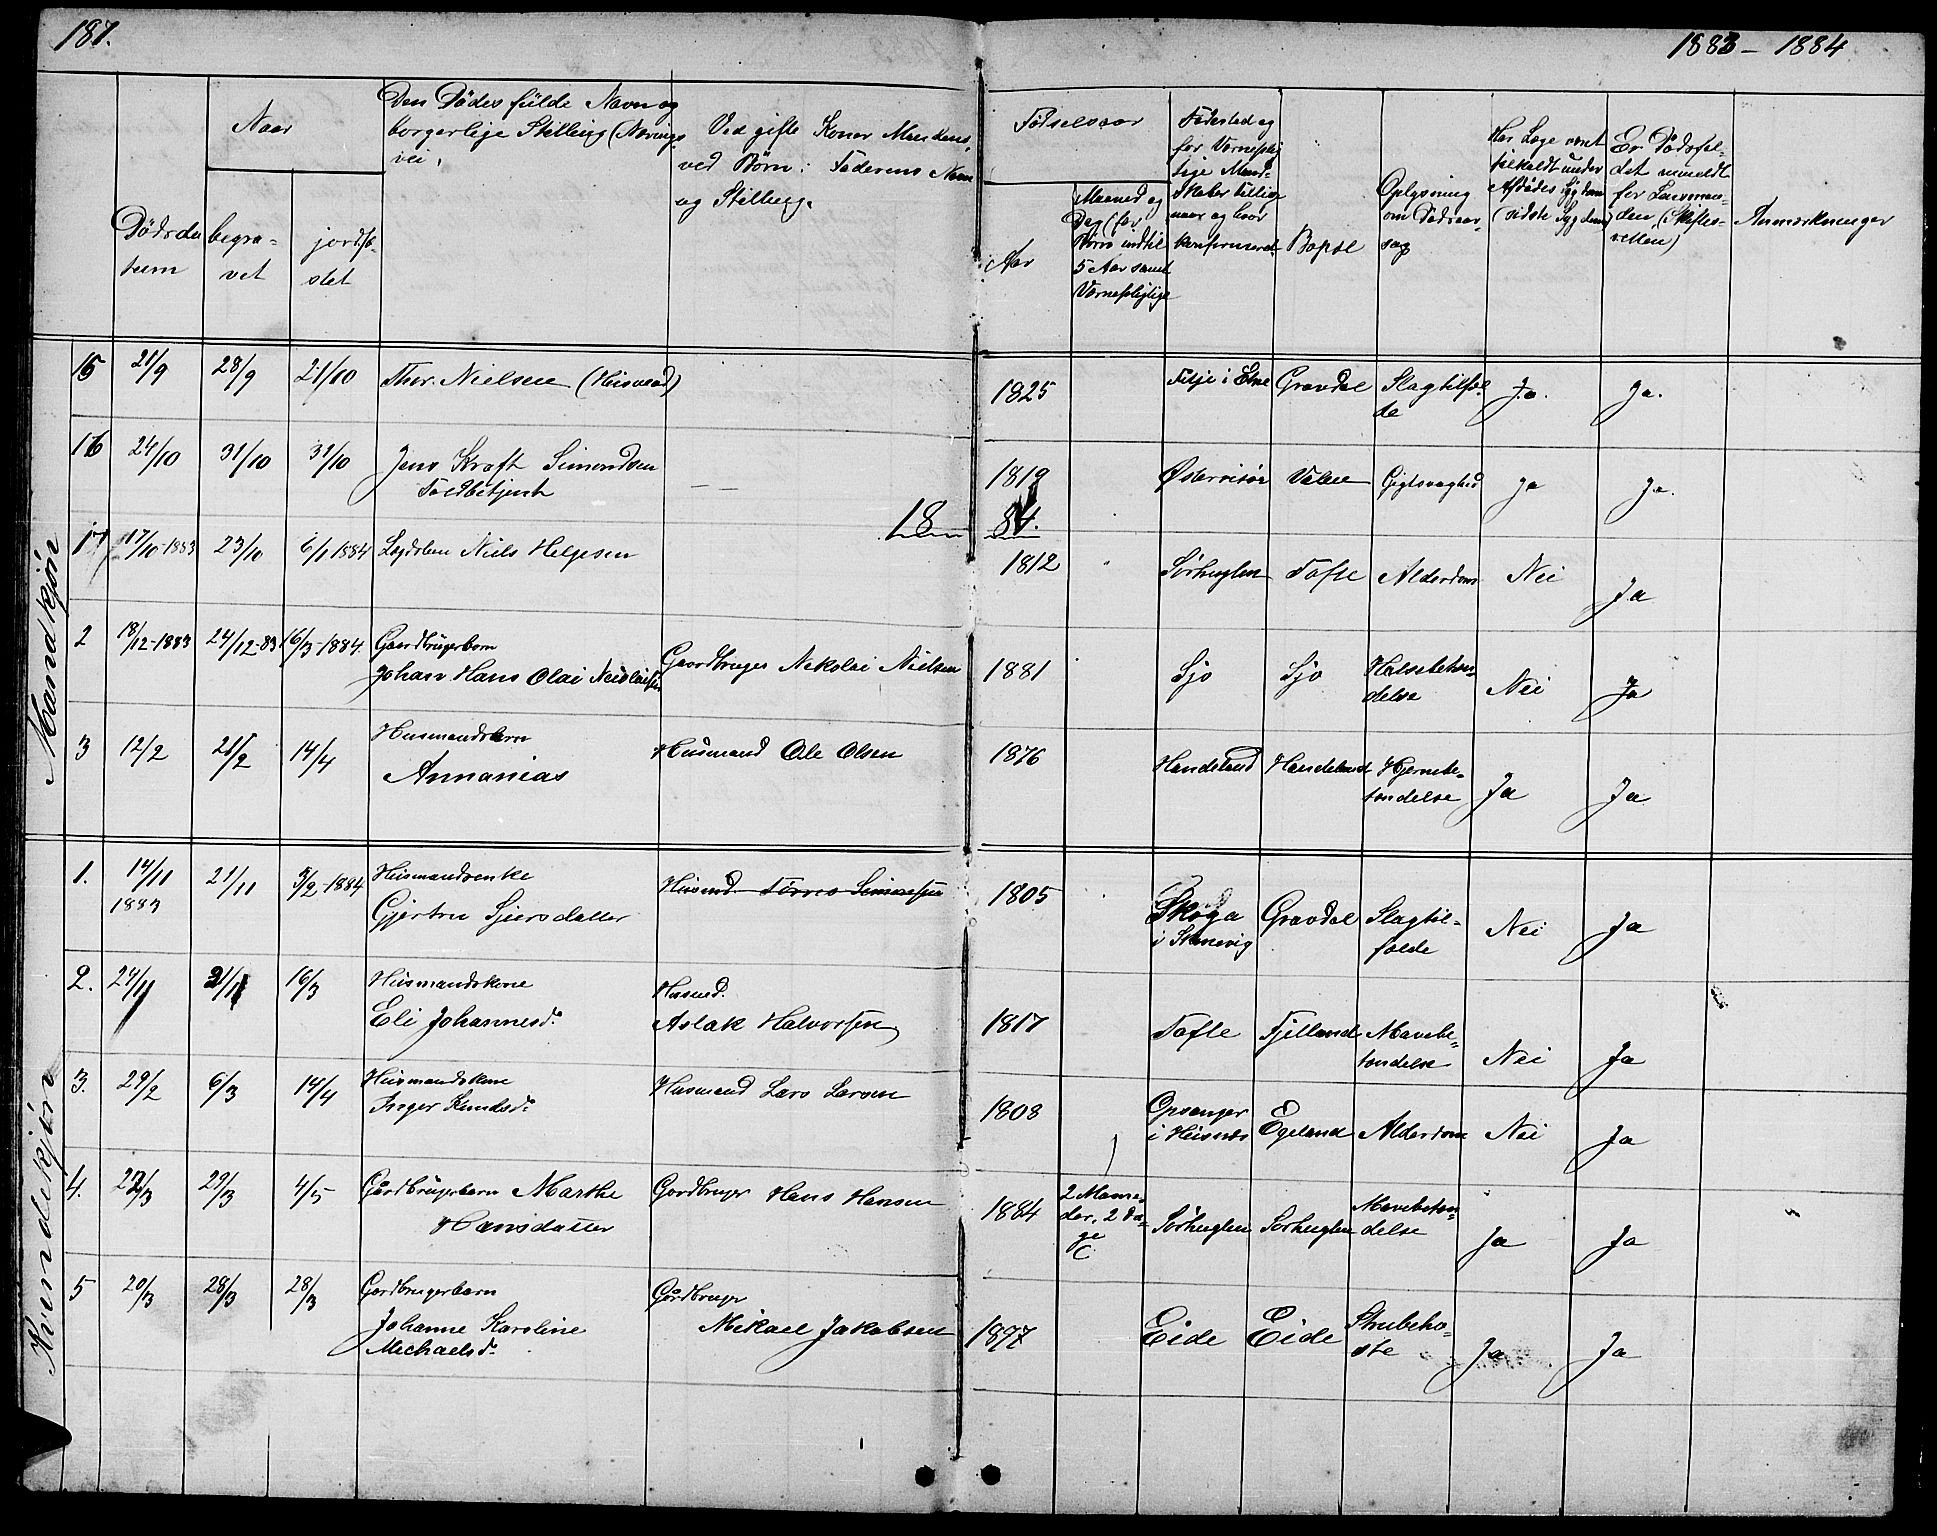 187.
1883 - 1884
Naar
Dödsda
tum
begra=
vet
jordfæ-
stet
Den Dödes fulde Navn og
borgerlige Stilling (Nærings
vei.
Ved gifte Koner Mandens,
ved Börn: Faderens Navn
og Stilling.
Födselsaar
Aar
Maaned og
Dag (for
Börn indtil
5 Aar samt
Værnepligtige
Födested og
for Værneplig
tige Mand-
skaber tillige
naar og hvor
konfirmeret
Bopæl
Oplysning
om Dødsaar-
sag
Har Læge været
tilkaldt under
Afdödes Sygdom
(sidste Sygdom)
Er Dødsfal-
det anmeldt
for Lensman-
den, (Skifte-
retten)
Anmærkninger
Mandkjön
15 21/9 28/9 21/10 Thor. Nielsen (Husmand) 1825 Tilje i Etne Gravdal Slagtilfæl-
de Ja. Ja.
16 24/10 31/10 31/10 Jens Kraft Simondsen
Toldbetjent 1819 Østerrisör Valen Gigtsvaghed Ja Ja.
18 84.
17 17/10-1883 23/10 6/1 1884 Lægdslem Niels Helgesen 1812 Sörhuglen Tofte Alderdom Nei Ja
2 18/12-1883 24/12-83 16/3-1884. Gaardbrugerbarn
Johan Hans Olai Nicolaisen Gaardbruger Nikolai Nielsen 1881 Sjo Sjo Halsebetæn=
delse Nei Ja
3 12/2 21/2 14/4 Husmandsbarn
Annanias Husmand Ole Olsen 1876 Handeland Handeland Hjernebe=
tændelse Ja Ja
Kvindekjön
1. 14/11
1883 21/11 3/2-1884 Husmandsenke
Gjertru Sjursdatter Husmd. Törres Simonsen 1805 Skoga
i Skonevig Gravdal Slagtil=
fælde Nei Ja
2. 24/11 31/11 16/3 Husmandskone
Eli Johannesd. Husmd.
Aslak Halvorsen 1817 Tofte Fjelland Mavebe=
tændelse Nei Ja
3. 29/2 6/3 14/4 Husmandskone
Inger Knudsd. Husmand Lars Larsen 1808 Opsanger
i Husnes Egeland Alderdom Nei Ja
4. 22/3 29/3 4/5 Gårdbrugerbarn Marthe
Hansdatter Gardbruger Hans Hansen 1884 2 Maane
der, 2 Da=
ge Sörhuglen Sörhuglen Mavebetæn=
delse Ja Ja
5 20/3 28/3 28/3 Gardbrugerbarn
Johanne Karoline
Michaelsd. Gårdbruger
Mikael Jakobsen 1877 Eide Eide Strubeho=
ste Ja Ja